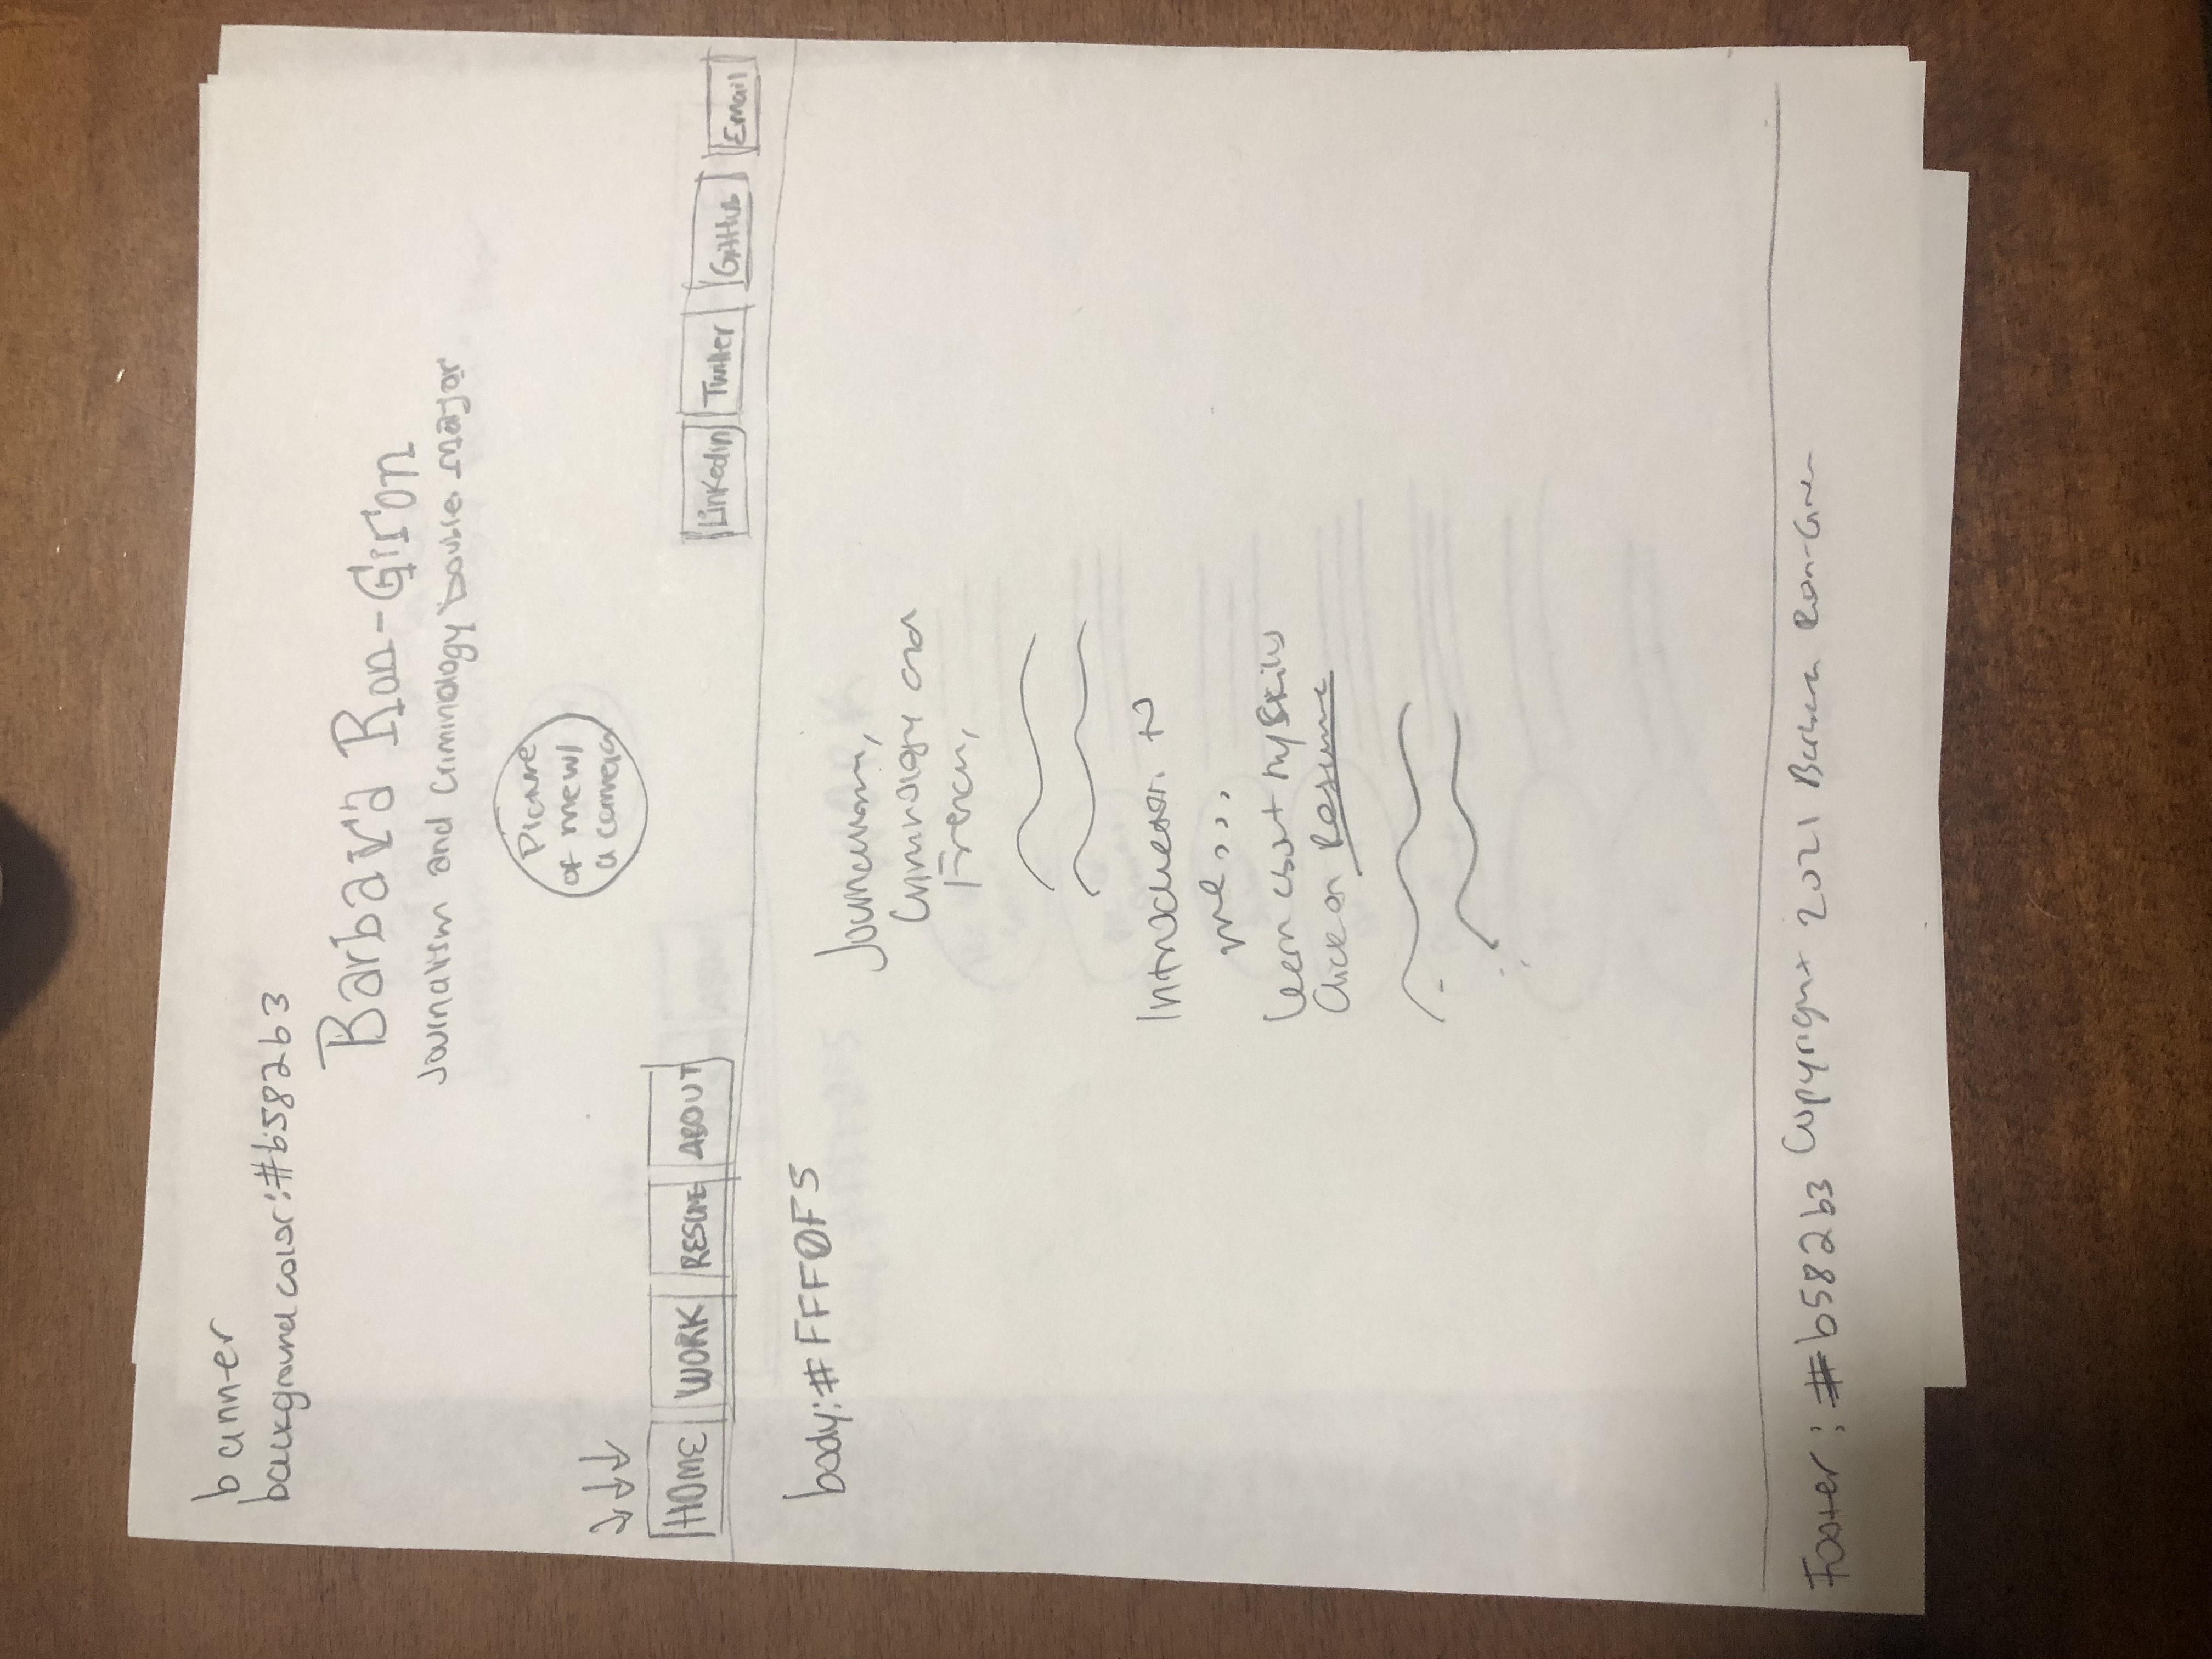 banner
background color: #b582b3
Barbara Ron-Giron
Journalism and Criminology Double Major
Picture
of me w/
a camera
HOME WORK RESUME ABOUT
Linkedin Twitter GitHub Email
body: #FFF0F5
Journalism,
Criminology and
French,
Introduction to
me...
learn about my skills
Click on Resume
Footer: #b582b3 Copyright 2021 Barbara Ron-Giron